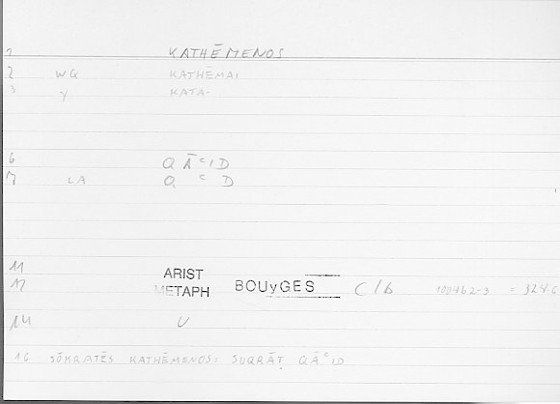 1 KATHĒMENOS
2 WQ KATHĒMAI
3 Y KATA-
6 QĀʿID
7 LA Q ʿ D
11 ARIST
12 METAPH BOUyGES C/b 1004b2-3 = 324.6
14 U
16 SŌKRATĒS KATHĒMENOS: SUQRĀṬ QĀʿID